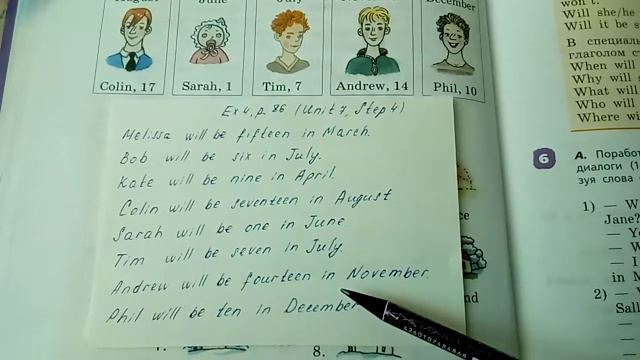 August June July December
Colin, 17 Sarah, 1 Tim, 7 Andrew, 14 Phil, 10
Ex 4, p. 86 (Unit 7, Step 4)
Melissa will be fifteen in March.
Bob will be six in July.
Kate will be nine in April.
Colin will be seventeen in August
Sarah will be one in June
Tim will be seven in July.
Andrew will be fourteen in November.
Phil will be ten in December
8.
won't.
Will she/he
Will it be s
В специаль
глаголом ст
When will
Why will
What will
Who will
Where wi
6
А. Поработ
диалоги (1
зуя слова
1) — W
Jane?
— Yo
— W
— I
in I
2) —
Sall